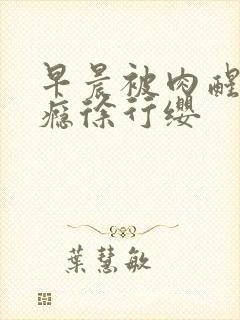 早晨被肉醒
瘾徐行缨
葉慧敏